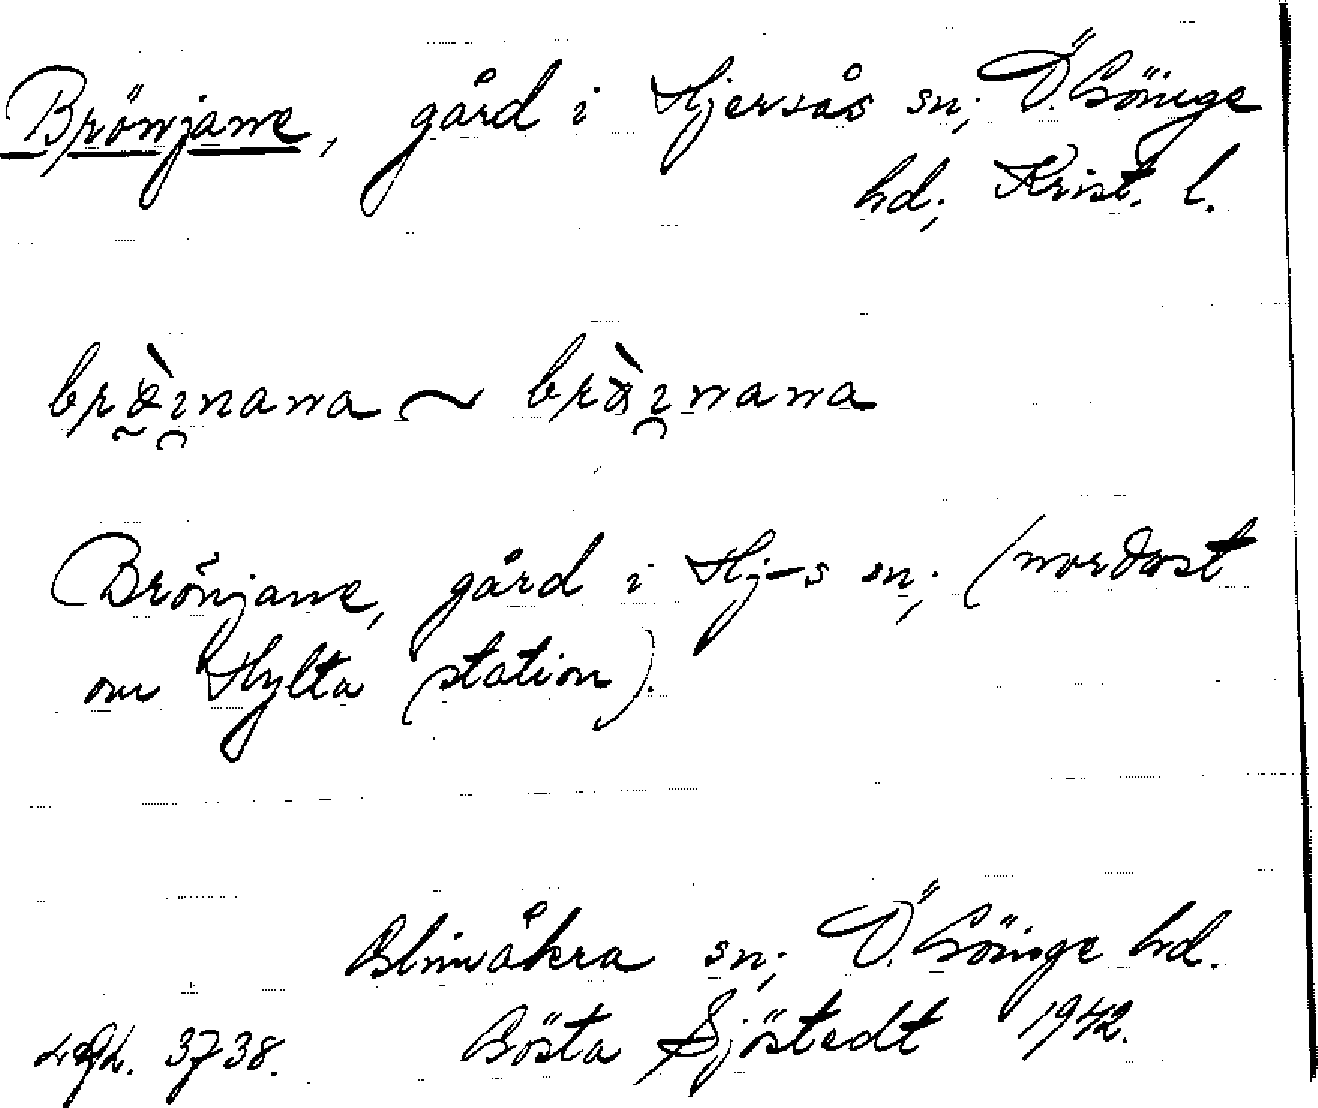 Brönjane, gård i Hjersås sn; Ö. Göinge
hd; Krist. l.
Brönjane, gård i Hj-s sn; (nordost
om Hylta station).
Glimåkra sn; Ö. Göinge hd.
Gösta Sjöstedt 1942.
3738.